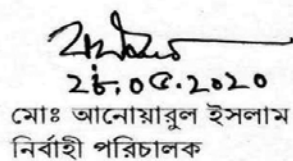 ২৮.০৫.২০২০
মোঃ আনোয়ারুল ইসলাম
নির্বাহী পরিচালক